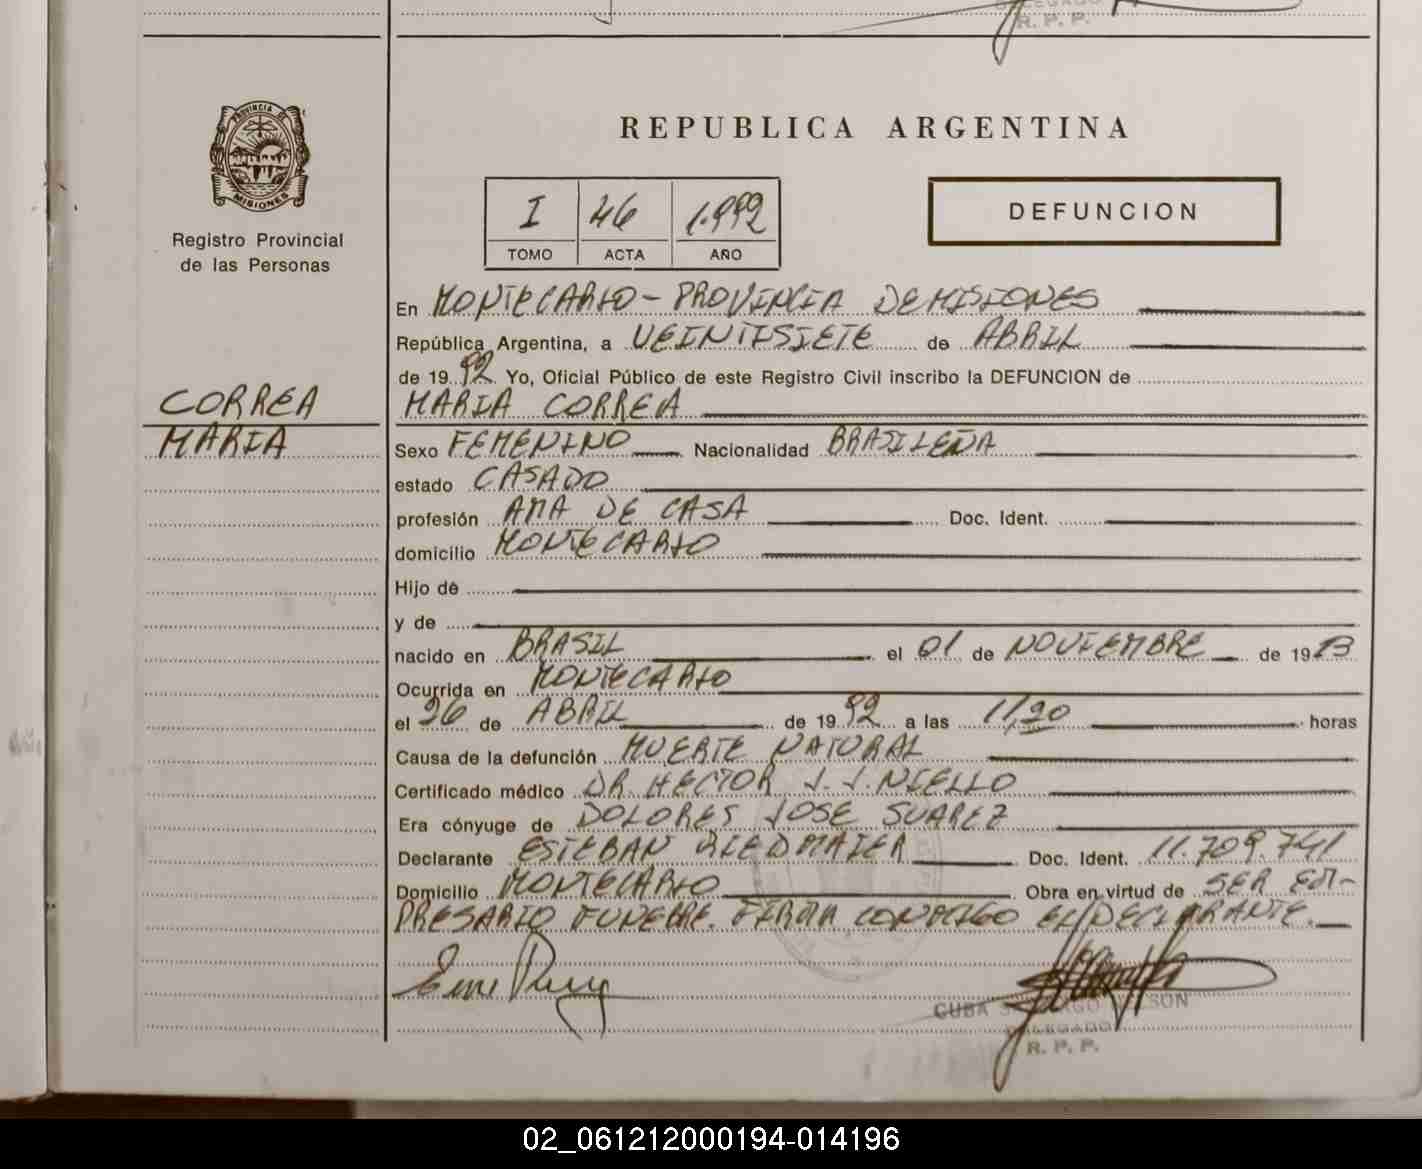 DELEGADO
R. P. P.
PROVINCIA DE
MISIONES
Registro Provincial
de las Personas
REPUBLICA ARGENTINA
I 46 1.992
TOMO ACTA AÑO
DEFUNCION
En MONTECARLO - PROVINCIA DE MISIONES
República Argentina, a VEINTISIETE de ABRIL
de 1992 Yo, Oficial Público de este Registro Civil inscribo la DEFUNCION de
CORREA MARIA CORREA
MARIA Sexo FEMENINO Nacionalidad BRASILEÑA
estado CASADO
profesión AMA DE CASA Doc. Ident.
domicilio MONTECARLO
Hijo de
y de
nacido en BRASIL el 01 de NOVIEMBRE de 1913
Ocurrida en MONTECARLO
el 26 de ABRIL de 1992 a las 11,20 horas
Causa de la defunción MUERTE NATURAL
Certificado médico DR. HECTOR J. J. NIELLO
Era cónyuge de DOLORES JOSE SUAREZ
Declarante ESTEBAN RIEDMAIER Doc. Ident. 11.709.741
Domicilio MONTECARLO Obra en virtud de SER EM-
PRESARIO FUNEBRE. FIRMA CONMIGO EL DECLARANTE.
CUBA NELSON
DELEGADO
R. P. P.
02_061212000194-014196